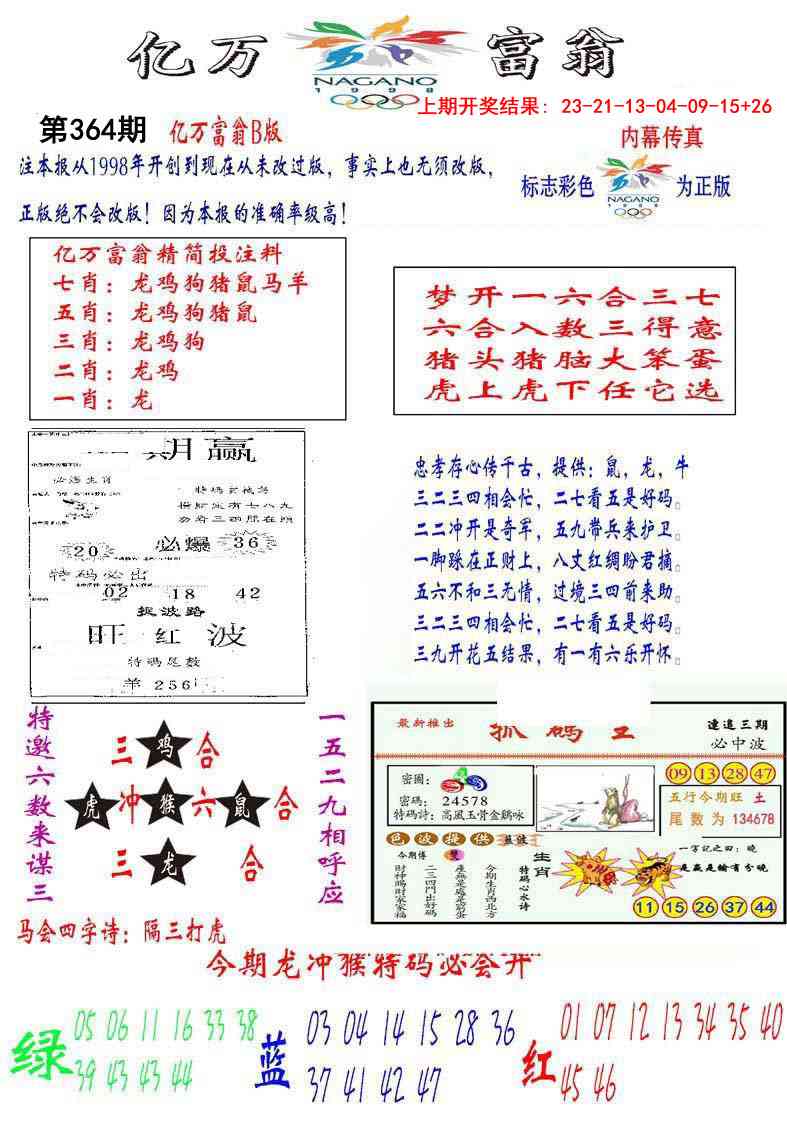 亿万
富翁
NAGANO
1998
上期开奖结果: 23-21-13-04-09-15+26
第364期 亿万富翁B版
内幕传真
注本报从1998年开创到现在从未改过版，事实上也无须改版，
正版绝不会改版！因为本报的准确率级高！
标志彩色
NAGANO
1998
为正版
亿万富翁精简投注料
七肖：龙鸡狗猪鼠马羊
五肖：龙鸡狗猪鼠
三肖：龙鸡狗
二肖：龙鸡
一肖：龙
梦开一六合三七
六合入数三得意
猪头猪脑大笨蛋
虎上虎下任它选
期赢
必爆生肖
20 必爆 36
特码必出
02 18 42
捉波路
旺红波
特码尾数
羊 256
忠孝存心传千古，提供：鼠，龙，牛
三二三四相会忙，二七看五是好码。
二二冲开是奇军，五九带兵来护卫。
一脚踩在正财上，八丈红绸盼君摘。
五六不和三无情，过境三四前来助。
三二三四相会忙，二七看五是好码。
三九开花五结果，有一有六乐开怀。
特邀六数来谋三
三 鸡 合
虎 冲 猴 六 鼠 合
三 龙 合
一五二九相呼应
马会四字诗：隔三打虎
最新推出
抓码王
連追三期
必中波
密圖：
密碼：24578
特碼詩：高風玉骨金鷄咏
09 13 28 47
五行今期旺 土
尾数为 134678
色波提供 藍波
今期博 雙
財神賜財家家福
二三四門出好碼
今期生肖西北方
特码心水诗
生肖
一字記之曰：曉
是贏是輸有分曉
11 15 26 37 44
今期龙冲猴特码必会开
绿
05 06 11 16 33 38
39 43 43 44
蓝
03 04 14 15 28 36
37 41 42 47
红
01 07 12 13 34 35 40
45 46